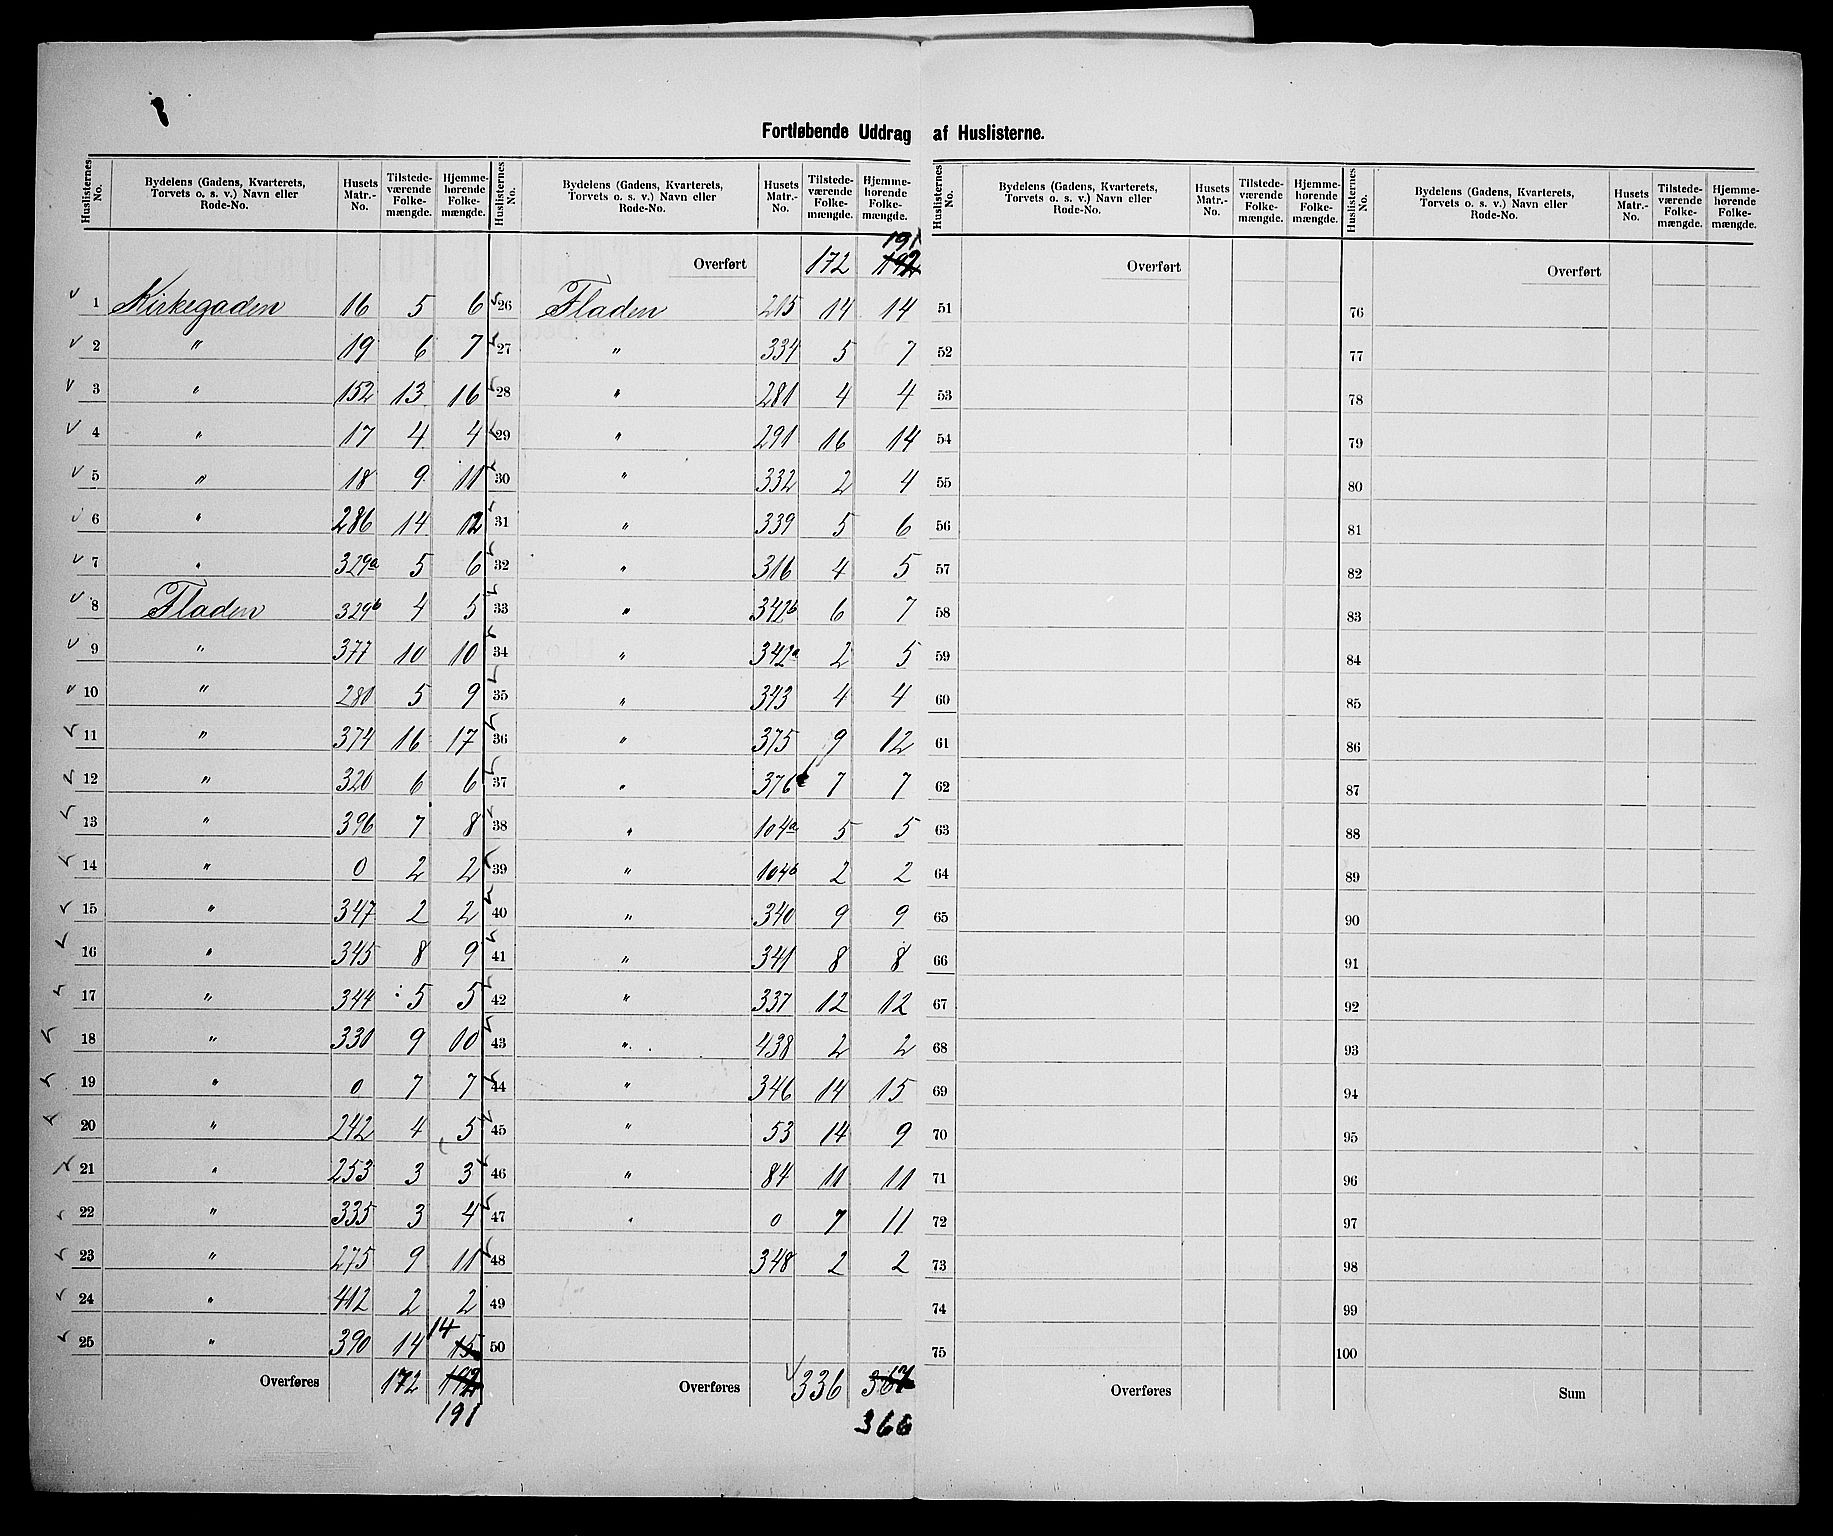 Fortløbende Uddrag af Huslisterne.
Huslisternes No. | Bydelens (Gadens, Kvarterets, Torvets o. s. v.) Navn eller Rode-No. | Husets Matr.-No. | Tilstedeværende Folkemængde. | Hjemmehørende Folkemængde.
1 Kirkegaden 16 5 6
2 " 19 6 7
3 " 152 13 16
4 " 17 4 4
5 " 18 9 11
6 " 286 14 12
7 " 329a 5 6
8 Fladen 329b 4 5
9 " 377 10 10
10 " 280 5 9
11 " 374 16 17
12 " 320 6 6
13 " 396 7 8
14 " 0 2 2
15 " 347 2 2
16 " 345 8 9
17 " 344 5 5
18 " 330 9 10
19 " 0 7 7
20 " 242 4 5
21 " 253 3 3
22 " 335 3 4
23 " 275 9 11
24 " 412 2 2
25 " 390 14 14 15
Overføres 172 192
191
Huslisternes No. | Bydelens (Gadens, Kvarterets, Torvets o. s. v.) Navn eller Rode-No. | Husets Matr.-No. | Tilstedeværende Folkemængde. | Hjemmehørende Folkemængde.
191
Overført 172 192
26 Fladen 215 14 14
27 " 334 5 7
28 " 281 4 4
29 " 291 16 14
30 " 332 2 4
31 " 339 5 6
32 " 316 4 5
33 " 342b 6 7
34 " 342a 2 5
35 " 343 4 4
36 " 375 9 12
37 " 376 7 7
38 " 104a 5 5
39 " 104b 2 2
40 " 340 9 9
41 " 341 8 8
42 " 337 12 12
43 " 438 2 2
44 " 346 14 15
45 " 53 14 9
46 " 84 11 11
47 " 0 7 11
48 348 2 2
49
50
Overføres 336 367
366
Huslisternes No. | Bydelens (Gadens, Kvarterets, Torvets o. s. v.) Navn eller Rode-No. | Husets Matr.-No. | Tilstedeværende Folkemængde. | Hjemmehørende Folkemængde.
Overført
51
52
53
54
55
56
57
58
59
60
61
62
63
64
65
66
67
68
69
70
71
72
73
74
75
Overføres
Huslisternes No. | Bydelens (Gadens, Kvarterets, Torvets o. s. v.) Navn eller Rode-No. | Husets Matr.-No. | Tilstedeværende Folkemængde. | Hjemmehørende Folkemængde.
Overført
76
77
78
79
80
81
82
83
84
85
86
87
88
89
90
91
92
93
94
95
96
97
98
99
100
Sum